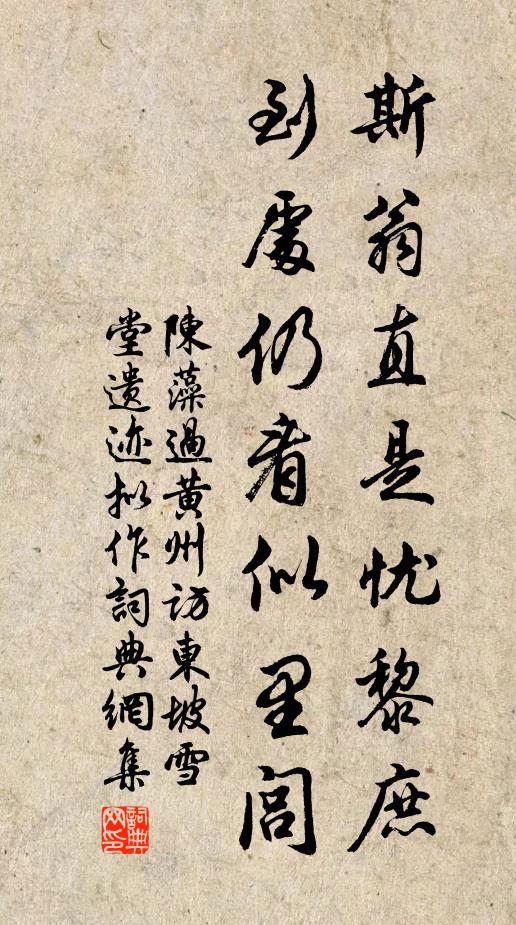 斯翁直是忧黎庶
到处仍看似里闾
陳藻過黄州訪東坡雪
堂遗迹拟作詞典網集
詞典网印